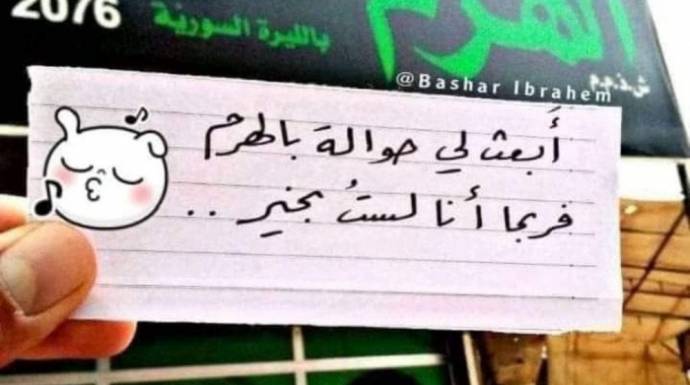 2076
الهرم
بالليرة السورية
ش.م.م
@Bashar Ibrahem
أَبعث لي حوالة بالهرم
فربما أنا لستُ بخير ..